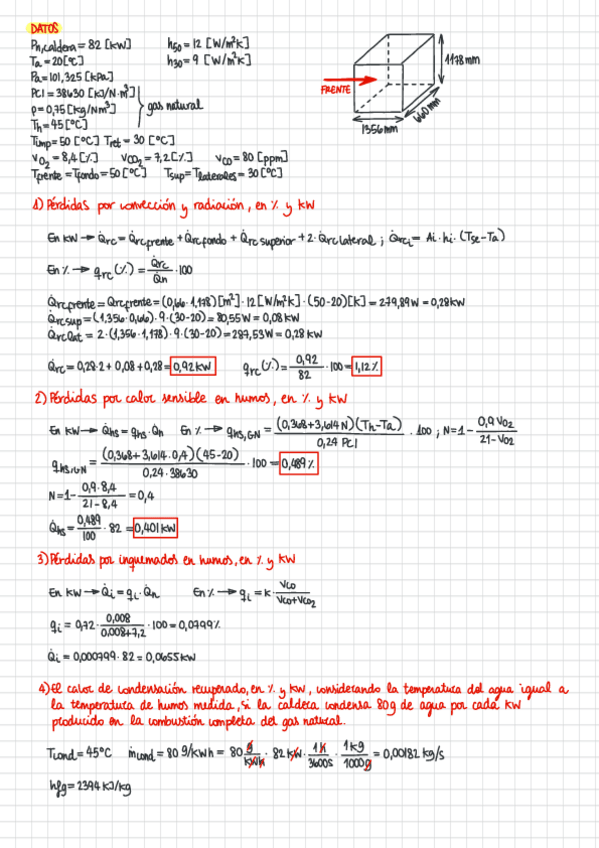 DATOS
Pn,caldera = 82 [kW] h50 = 12 [W/m²k]
Ta = 20 [ºC] h30 = 9 [W/m²k]
Pa = 101,325 [kPa]
PCI = 38630 [KJ/N·m³]
ρ = 0,75 [kg/Nm³] gas natural
Th = 45 [ºC]
Timp = 50 [ºC] Tret = 30 [ºC]
vO2 = 8,4 [%] vCO2 = 7,2 [%] vCO = 80 [ppm]
Tfrente = Tfondo = 50 [ºC] Tsup = Tlaterales = 30 [ºC]
FRENTE
1178mm
660mm
1356mm
1) Pérdidas por convección y radiación, en % y kW
En kW → Q̇rc = Q̇rc,frente + Q̇rc,fondo + Q̇rc superior + 2·Q̇rc lateral ; Q̇rci = Ai·hi·(Tse-Ta)
En % → qrc (%) = Q̇rc / Q̇n · 100
Q̇rc,frente = Qrc,frente = (0,66·1,178)[m²]·12[W/m²k]·(50-20)[k] = 279,89W = 0,28kW
Q̇rcsup = (1,356·0,66)·9·(30-20) = 80,55W = 0,08kW
Q̇rclat = 2·(1,356·1,178)·9·(30-20) = 287,53W = 0,28 kW
Q̇rc = 0,28·2 + 0,08 + 0,28 = 0,92 kW qrc(%) = 0,92 / 82 · 100 = 1,12%
2) Pérdidas por calor sensible en humos, en % y kW
En kW → Q̇hs = qhs·Q̇n En % → qhs,GN = (0,368+3,614N)(Th-Ta) / 0,24 PCI · 100 ; N = 1 - 0,9 VO2 / 21-VO2
qhs,GN = (0,368+3,614·0,4)(45-20) / 0,24·38630 · 100 = 0,489%
N = 1 - 0,9·8,4 / 21-8,4 = 0,4
Q̇hs = 0,489 / 100 · 82 = 0,401 kW
3) Pérdidas por inquemados en humos, en % y kW
En kW → Q̇i = qi·Q̇n En % → qi = k· VCO / VCO+VCO2
qi = 0,72· 0,008 / 0,008+7,2 ·100 = 0,0799%
Q̇i = 0,000799·82 = 0,0655kW
4) El calor de condensación recuperado, en % y kW, considerando la temperatura del agua igual a
la temperatura de humos medida, si la caldera condensa 80g de agua por cada kW
producido en la combustión completa del gas natural.
Tcond = 45ºC ṁcond = 80 g/kWh = 80 g/kWh · 82 kW · 1h/3600s · 1kg/1000g = 0,00182 kg/s
hfg = 2394 KJ/kg